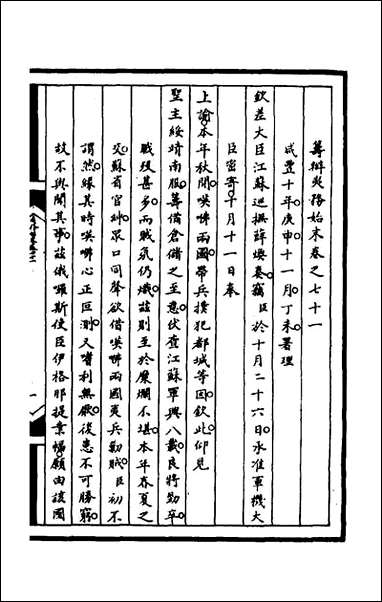 籌辦夷務始末卷之七十一
咸豐十年庚申十一月丁未署理
欽差大臣江蘇巡撫薛煥奏竊臣於十月二十六日承准軍機大
臣密寄十月十一日奉
上諭本年秋間𠸄咈兩國帶兵撲犯都城等因欽此仰見
聖主綏靖南服籌備倉儲之至意伏查江蘇軍興八載民將勤卒
賊甚多而賊氛仍熾茲則至於糜爛不堪本年春夏之
交蘇省官紳眾口同聲欲借𠸄咈兩國夷兵勦賊臣初不
謂然緣其時𠸄咈心正叵測又嗜利無厭後患不可勝窮
故不與聞其事茲俄囉斯使臣伊格那提業幅願由該國